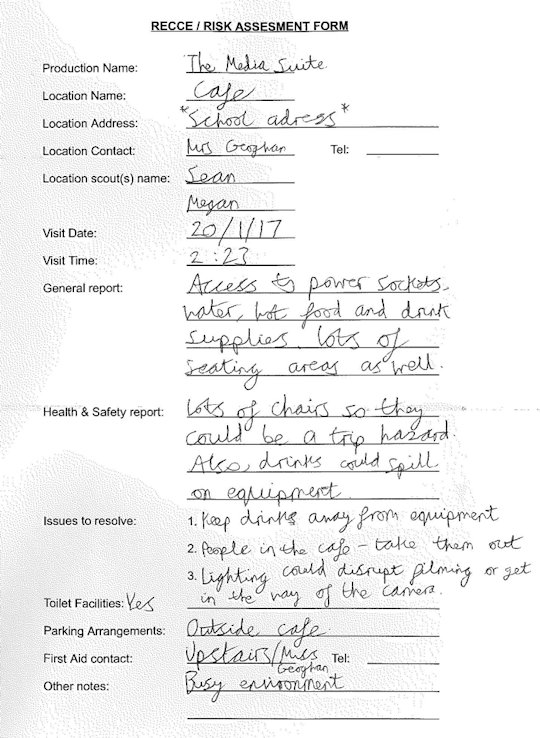 RECCE / RISK ASSESMENT FORM
Production Name: The Media Suite
Location Name: Cafe
Location Address: *School adress*
Location Contact: Mrs Geoghan Tel:
Location scout(s) name: Sean
Megan
Visit Date: 20/1/17
Visit Time: 2:23
General report: Access to power sockets,
water, hot food and drink
supplies. lots of
seating areas as well.
Health & Safety report: lots of chairs so they
could be a trip hazard.
Also, drinks could spill
on equipment.
Issues to resolve: 1. Keep drinks away from equipment
2. People in the cafe - take them out
3. Lighting could disrupt filming or get
in the way of the camera.
Toilet Facilities: Yes
Parking Arrangements: Outside cafe.
First Aid contact: Upstairs/Miss Geoghan Tel:
Other notes: Busy environment